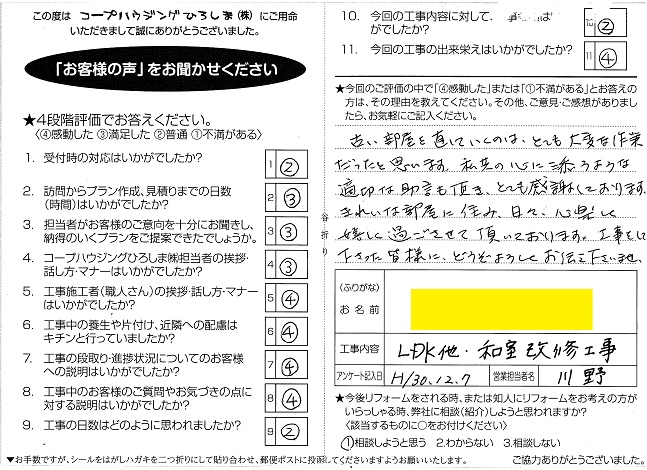 この度は コープハウジングひろしま(株) にご用命
いただきまして誠にありがとうございました。
「お客様の声」をお聞かせください
★4段階評価でお答えください。
〈④感動した ③満足した ②普通 ①不満がある〉
1. 受付時の対応はいかがでしたか? 1 ②
2. 訪問からプラン作成、見積りまでの日数
(時間)はいかがでしたか? 2 ③
3. 担当者がお客様のご意向を十分にお聞きし、
納得のいくプランをご提案できたでしょうか。 3 ③
4. コープハウジングひろしま㈱担当者の挨拶・
話し方・マナーはいかがでしたか? 4 ③
5. 工事施工者(職人さん)の挨拶・話し方・マナー
はいかがでしたか? 5 ④
6. 工事中の養生や片付け、近隣への配慮は
キチンと行っていましたか? 6 ④
7. 工事の段取り・進捗状況についてのお客様
への説明はいかがでしたか? 7 ④
8. 工事中のお客様のご質問やお気づきの点に
対する説明はいかがでしたか? 8 ④
9. 工事の日数はどのように思われましたか? 9 ②
谷折り
10. 今回の工事内容に対して、
がでしたか? 10 ②
11. 今回の工事の出来栄えはいかがでしたか? 11 ④
★今回のご評価の中で「④感動した」または「①不満がある」とお答えの
方は、その理由を教えてください。その他、ご意見・ご感想がありまし
たら、お気軽にご記入ください。
古い部屋を直していくのは、とても大変な作業
だったと思います。私共の心に添うような
適切な助言も頂き、とても感謝しております。
きれいな部屋に住み、日々、心楽しく
嬉しく過ごさせて頂いております。工事をして
下さった皆様に、どうぞよろしくお伝え下さいませ。
(ふりがな)
お名前
工事内容 LDK他・和室改修工事
アンケート記入日 H/30.12.7 営業担当者名 川野
★今後リフォームをされる時、または知人にリフォームをお考えの方が
いらっしゃる時、弊社に相談(紹介)しようと思われますか?
〈該当するものに○をお付けください〉
①相談しようと思う 2.わからない 3.相談しない
▼お手数ですが、シールをはがしハガキを二つ折りにして貼り合わせ、郵便ポストに投函してくださいますようお願いいたします。 ご協力ありがとうございました。